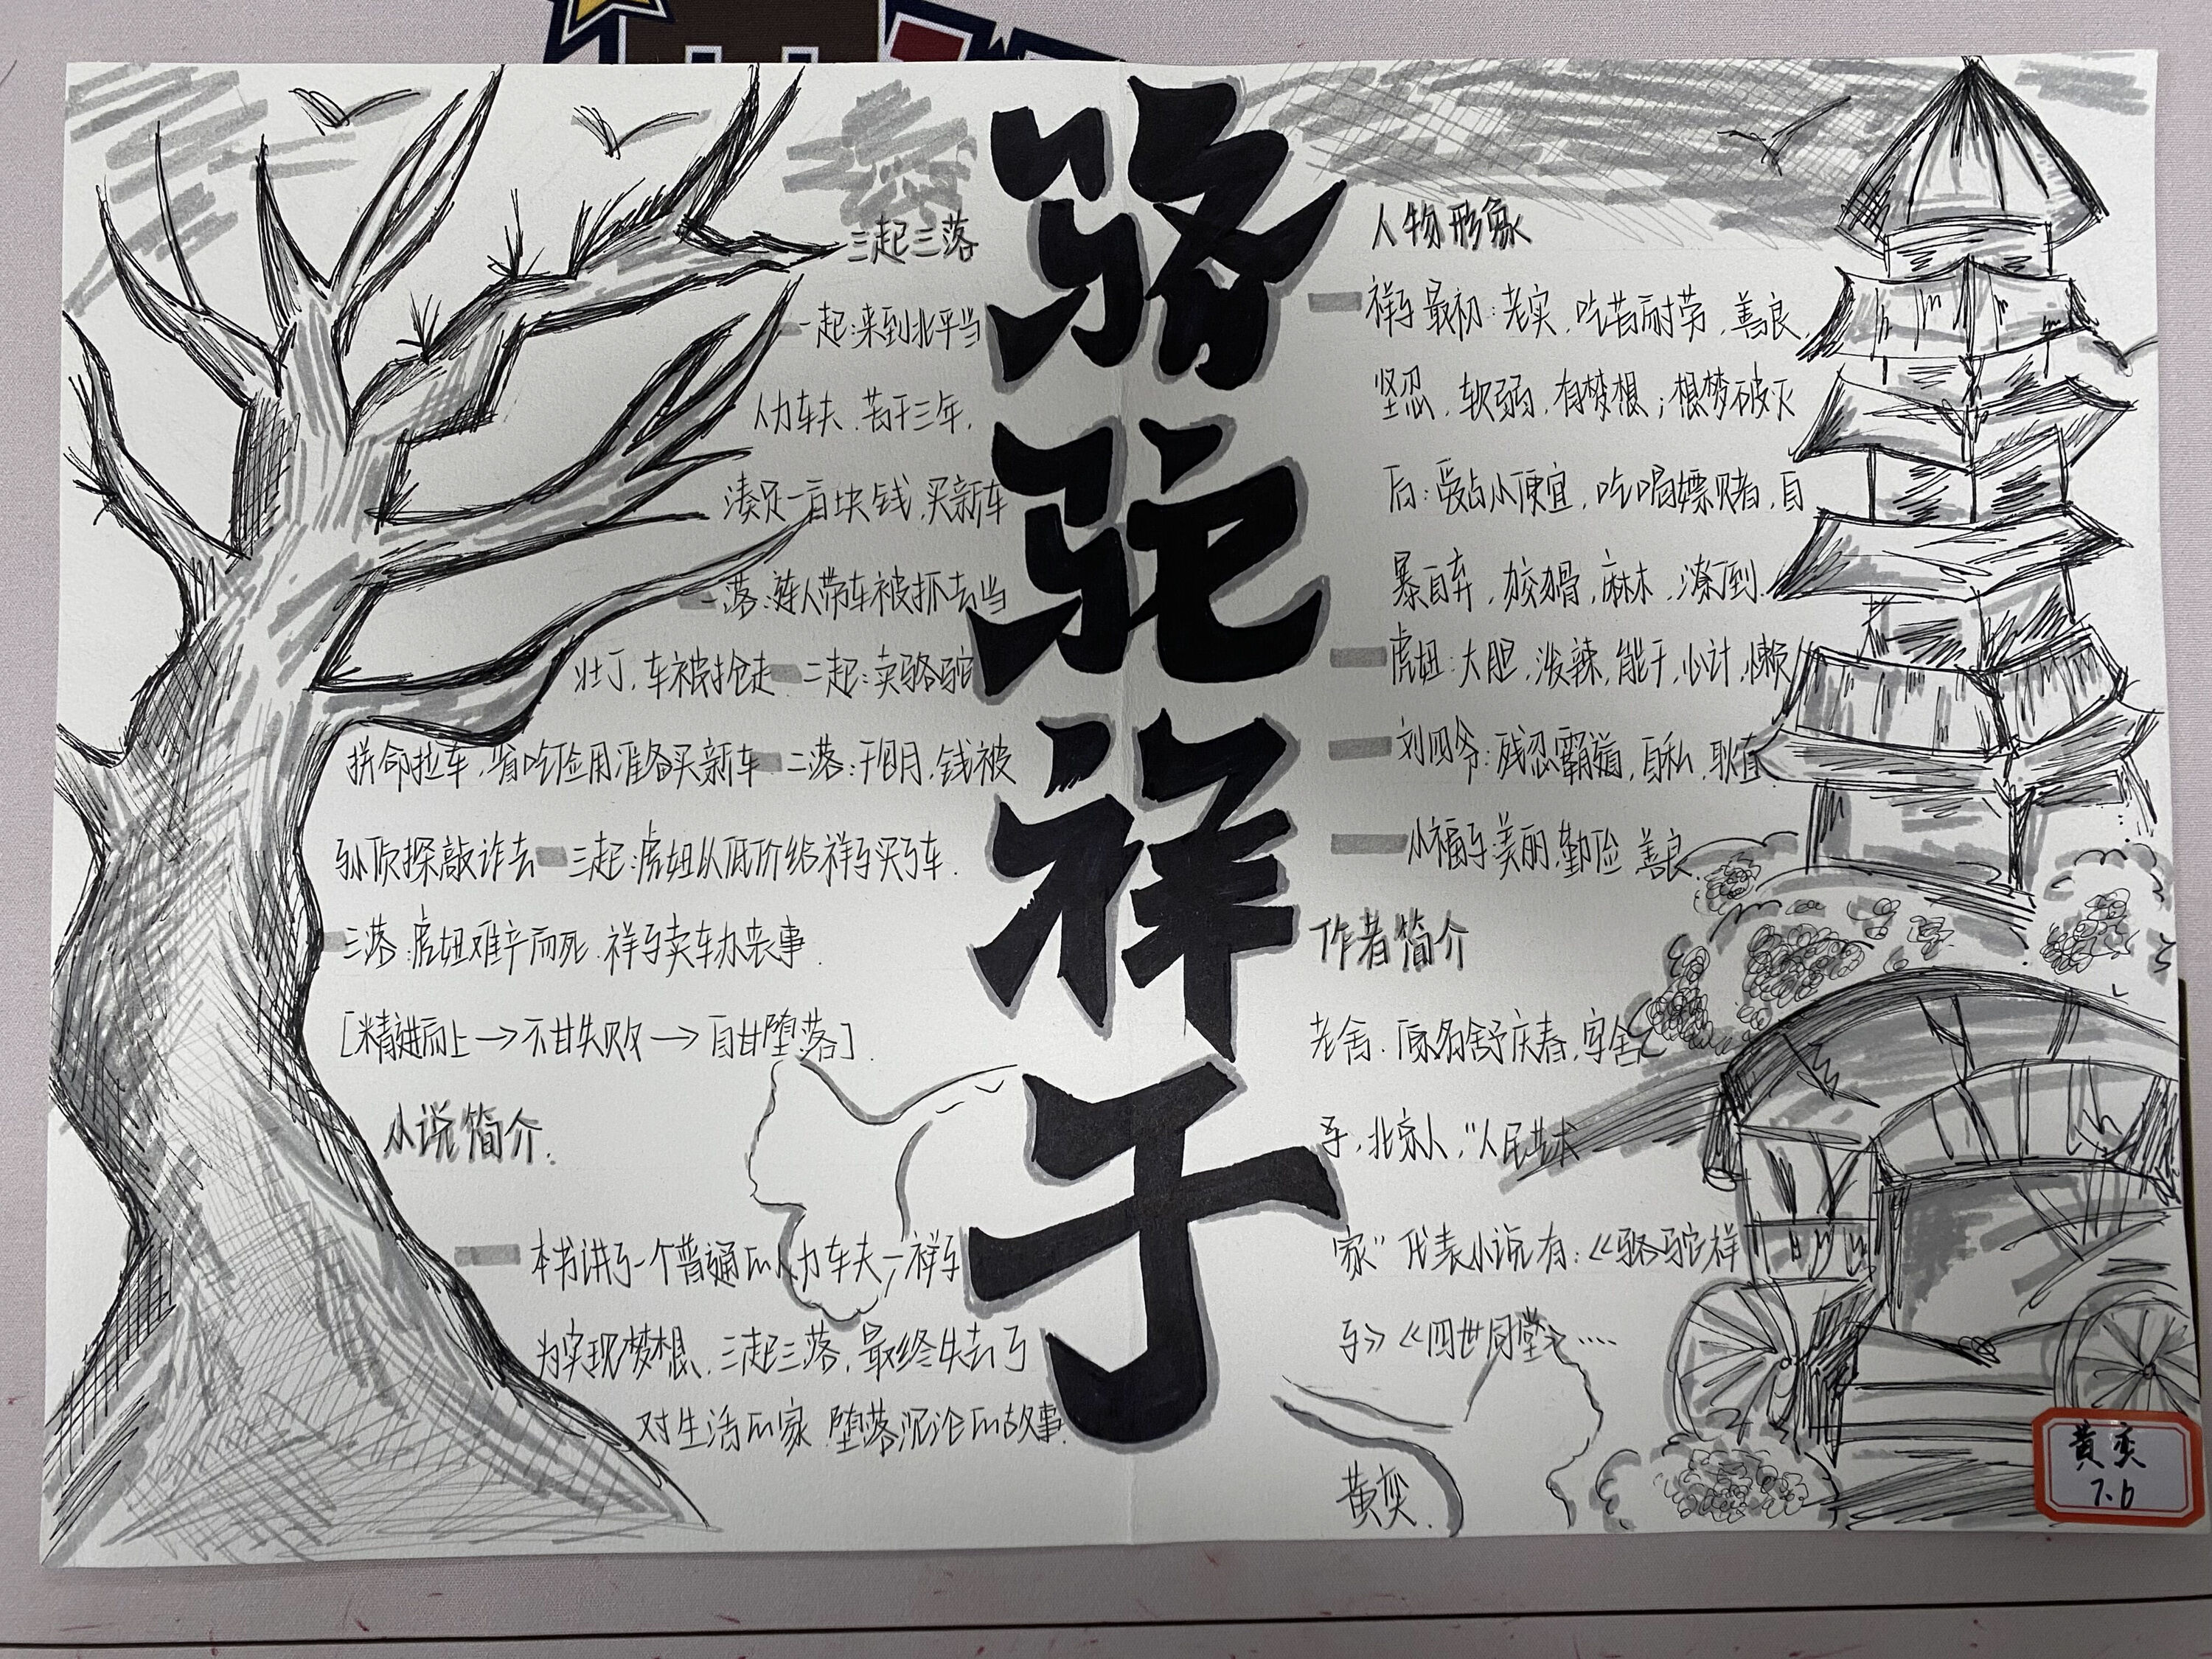 骆驼祥子
三起三落
一起:来到北平当
人力车夫.苦干三年,
凑足一百块钱,买新车
一落:连人带车被抓去当
壮丁,车被抢走 二起:卖骆驼
拼命拉车,省吃俭用准备买新车 二落:干包月,钱被
孙侦探敲诈去 三起:虎妞以低价给祥子买了车.
三落:虎妞难产而死.祥子卖车办丧事.
[精进向上→不甘失败→自甘堕落].
小说简介.
本书讲了一个普通的人力车夫—祥子
为实现梦想,三起三落,最终失去了
对生活的家.堕落沉沦的故事.
人物形象
祥子最初:老实,吃苦耐劳,善良,
坚忍,软弱,有梦想;想梦破灭
后:爱占小便宜,吃喝嫖赌,自
暴自弃,狡猾,麻木,潦倒.
虎妞:大胆,泼辣,能干,心计,懒
刘四爷:残忍霸道,自私,耿直.
小福子:美丽,勤俭 善良.
作者简介
老舍.原名舒庆春,字舍
予,北京人,"人民艺术
家"代表小说有:《骆驼祥
子》《四世同堂》....
黄奕.
黄奕
7.6